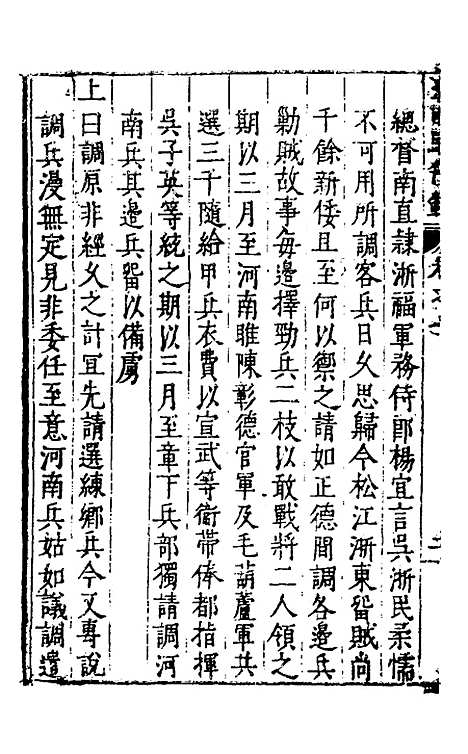 總督南直隷浙福軍務侍郎楊宜言吳浙民柔懦
不可用所調客兵日久思歸今松江浙東留賊尚
千餘新倭且至何以禦之請如正德間調各邊兵
勦賊故事每邊擇勁兵二枝以敢戰將二人領之
期以三月至河南睢陳彰德官軍及毛葫蘆軍共
選三千隨給甲兵衣費以宣武等衛帶俸都指揮
吳子英等統之期以三月至章下兵部獨請調河
南兵其邊兵留以備虜
上曰調原非經久之計冝先請選練鄉兵今又專說
調兵漫無定見非委任至意河南兵姑如議調遣